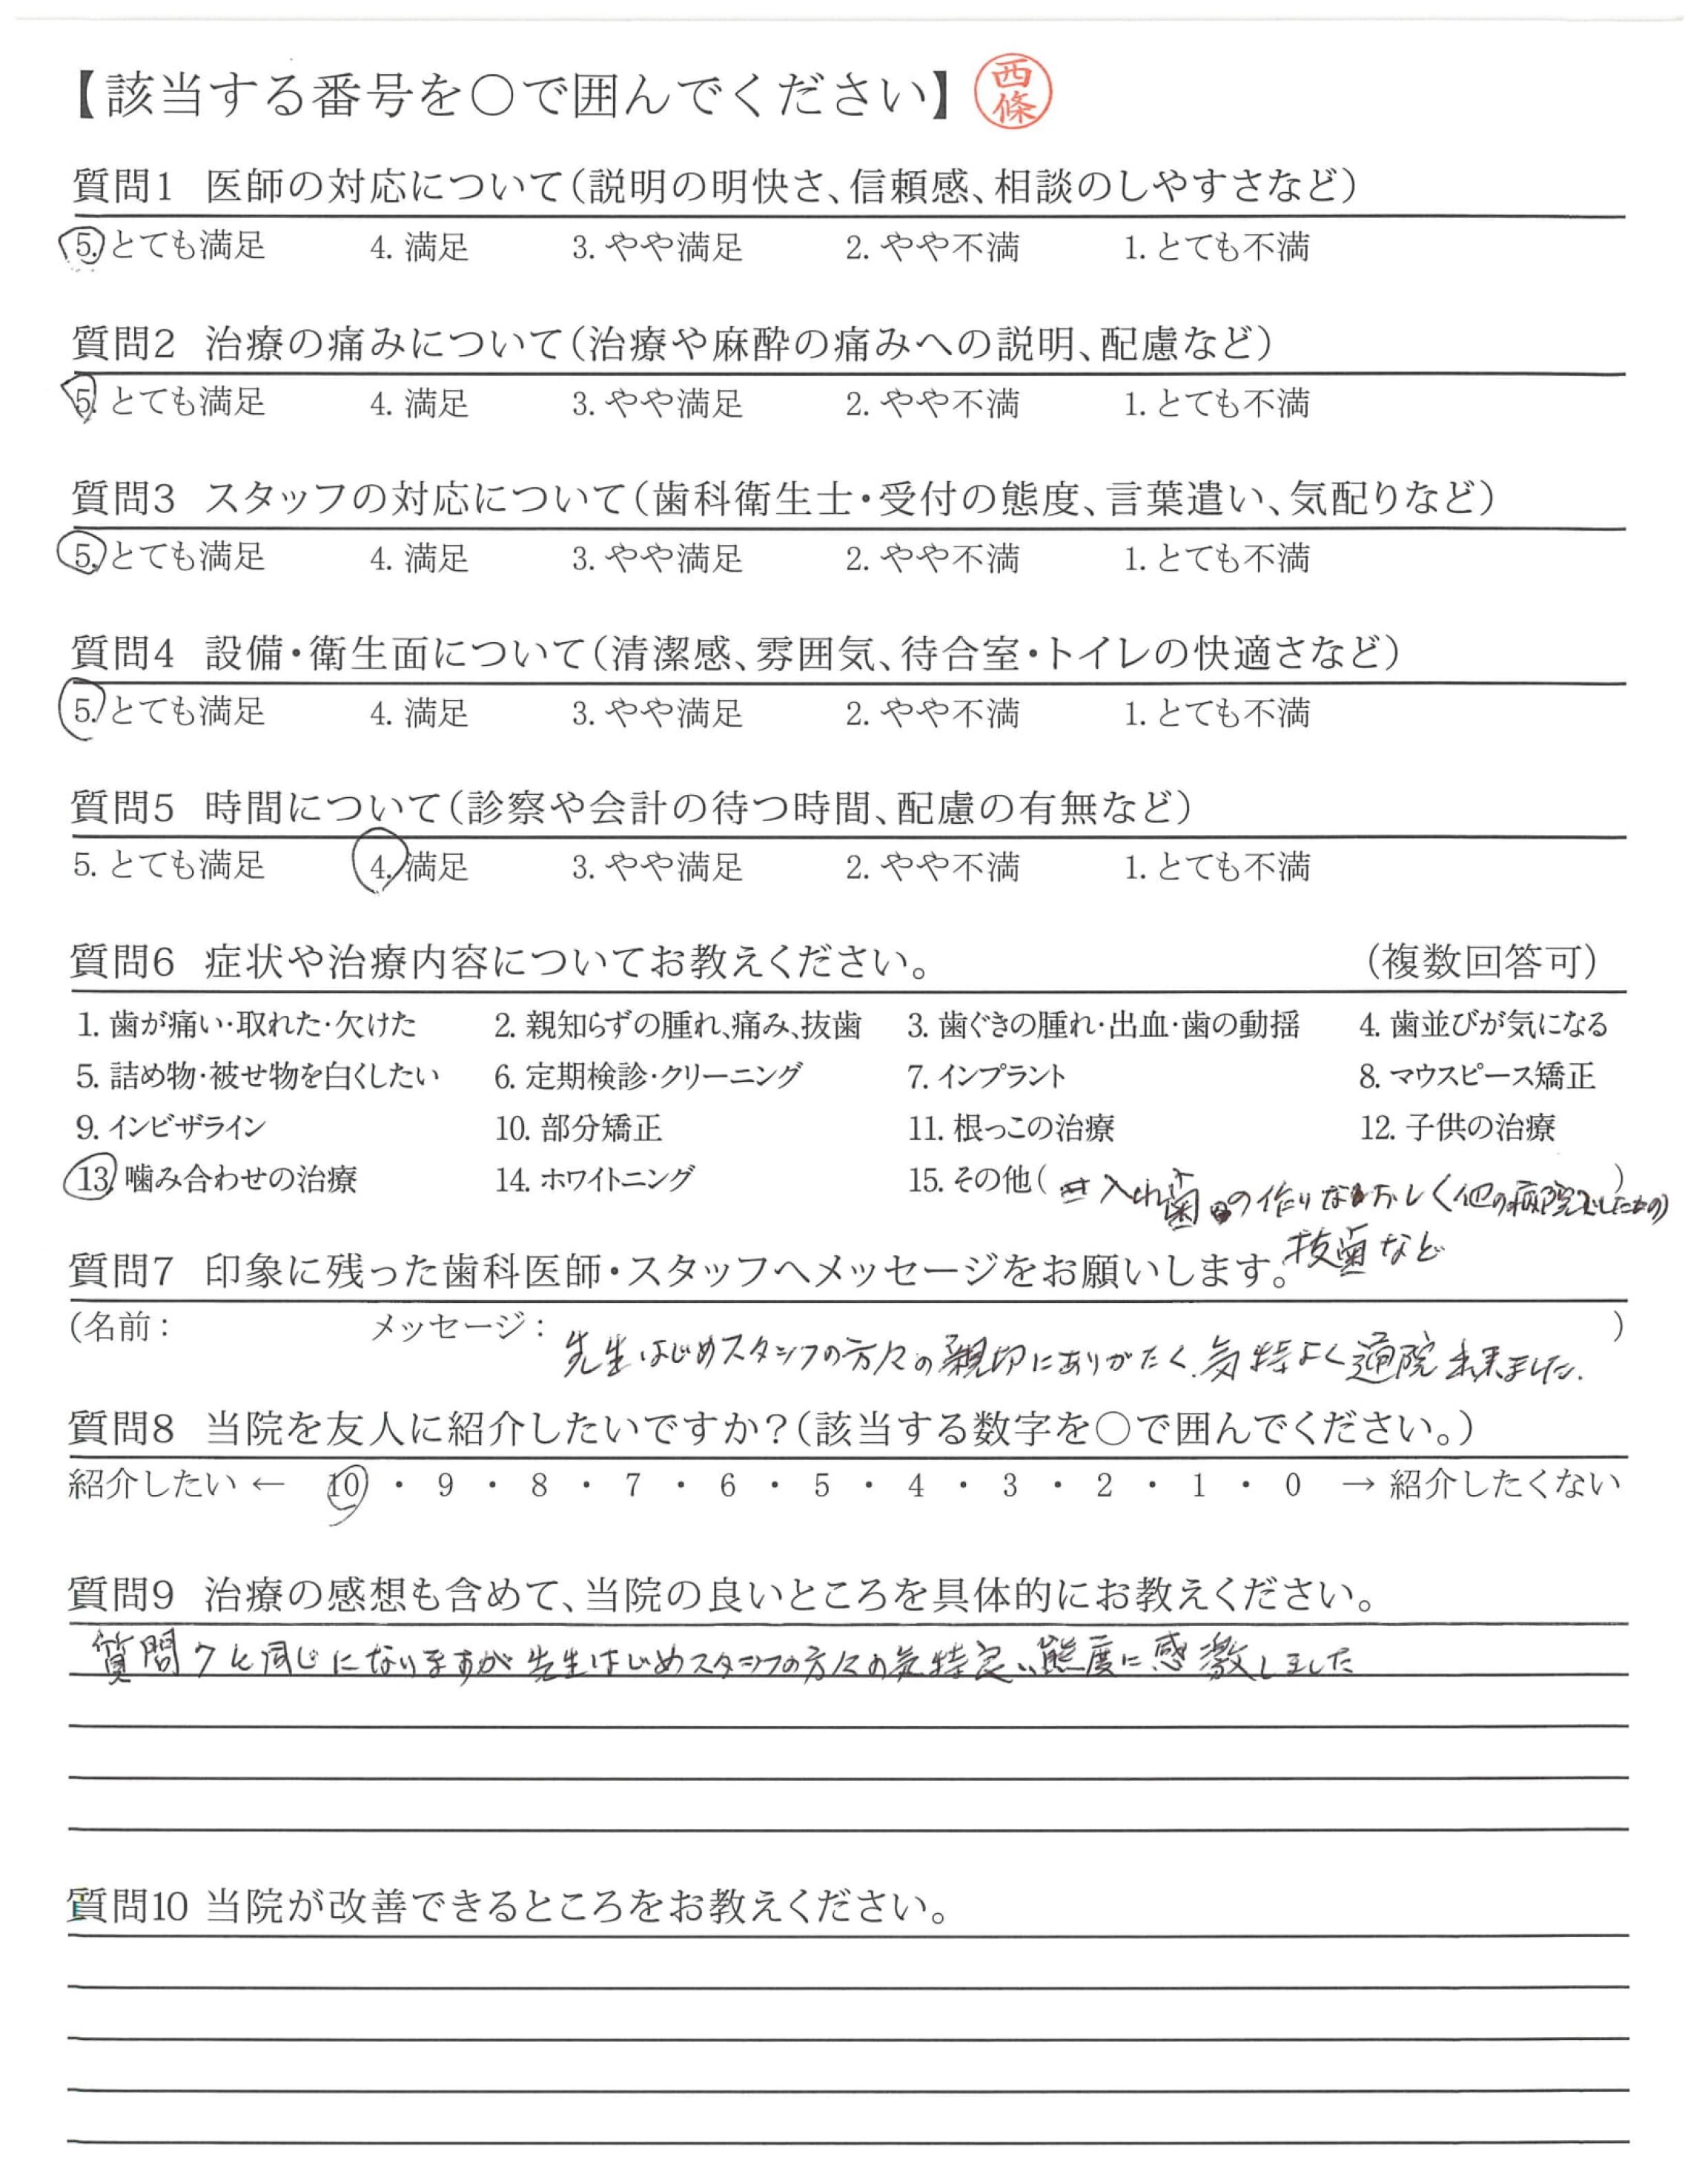 【該当する番号を○で囲んでください】 西條
質問1 医師の対応について(説明の明快さ、信頼感、相談のしやすさなど)
5. とても満足 4. 満足 3. やや満足 2. やや不満 1. とても不満
質問2 治療の痛みについて(治療や麻酔の痛みへの説明、配慮など)
5. とても満足 4. 満足 3. やや満足 2. やや不満 1. とても不満
質問3 スタッフの対応について(歯科衛生士・受付の態度、言葉遣い、気配りなど)
5. とても満足 4. 満足 3. やや満足 2. やや不満 1. とても不満
質問4 設備・衛生面について(清潔感、雰囲気、待合室・トイレの快適さなど)
5. とても満足 4. 満足 3. やや満足 2. やや不満 1. とても不満
質問5 時間について(診察や会計の待つ時間、配慮の有無など)
5. とても満足 4. 満足 3. やや満足 2. やや不満 1. とても不満
質問6 症状や治療内容についてお教えください。 (複数回答可)
1. 歯が痛い・取れた・欠けた 2. 親知らずの腫れ、痛み、抜歯 3. 歯ぐきの腫れ・出血・歯の動揺 4. 歯並びが気になる
5. 詰め物・被せ物を白くしたい 6. 定期検診・クリーニング 7. インプラント 8. マウスピース矯正
9. インビザライン 10. 部分矯正 11. 根っこの治療 12. 子供の治療
13. 噛み合わせの治療 14. ホワイトニング 15. その他( )
入れ歯の作りなおし(他の病院でしたもの)
抜歯など
質問7 印象に残った歯科医師・スタッフへメッセージをお願いします。
(名前: メッセージ: )
先生はじめスタッフの方々の親切にありがたく、気持よく通院出来ました.
質問8 当院を友人に紹介したいですか?(該当する数字を○で囲んでください。)
紹介したい ← 10 ・ 9 ・ 8 ・ 7 ・ 6 ・ 5 ・ 4 ・ 3 ・ 2 ・ 1 ・ 0 → 紹介したくない
質問9 治療の感想も含めて、当院の良いところを具体的にお教えください。
質問7と同じになりますが先生はじめスタッフの方々の気持良い態度に感激しました
質問10 当院が改善できるところをお教えください。